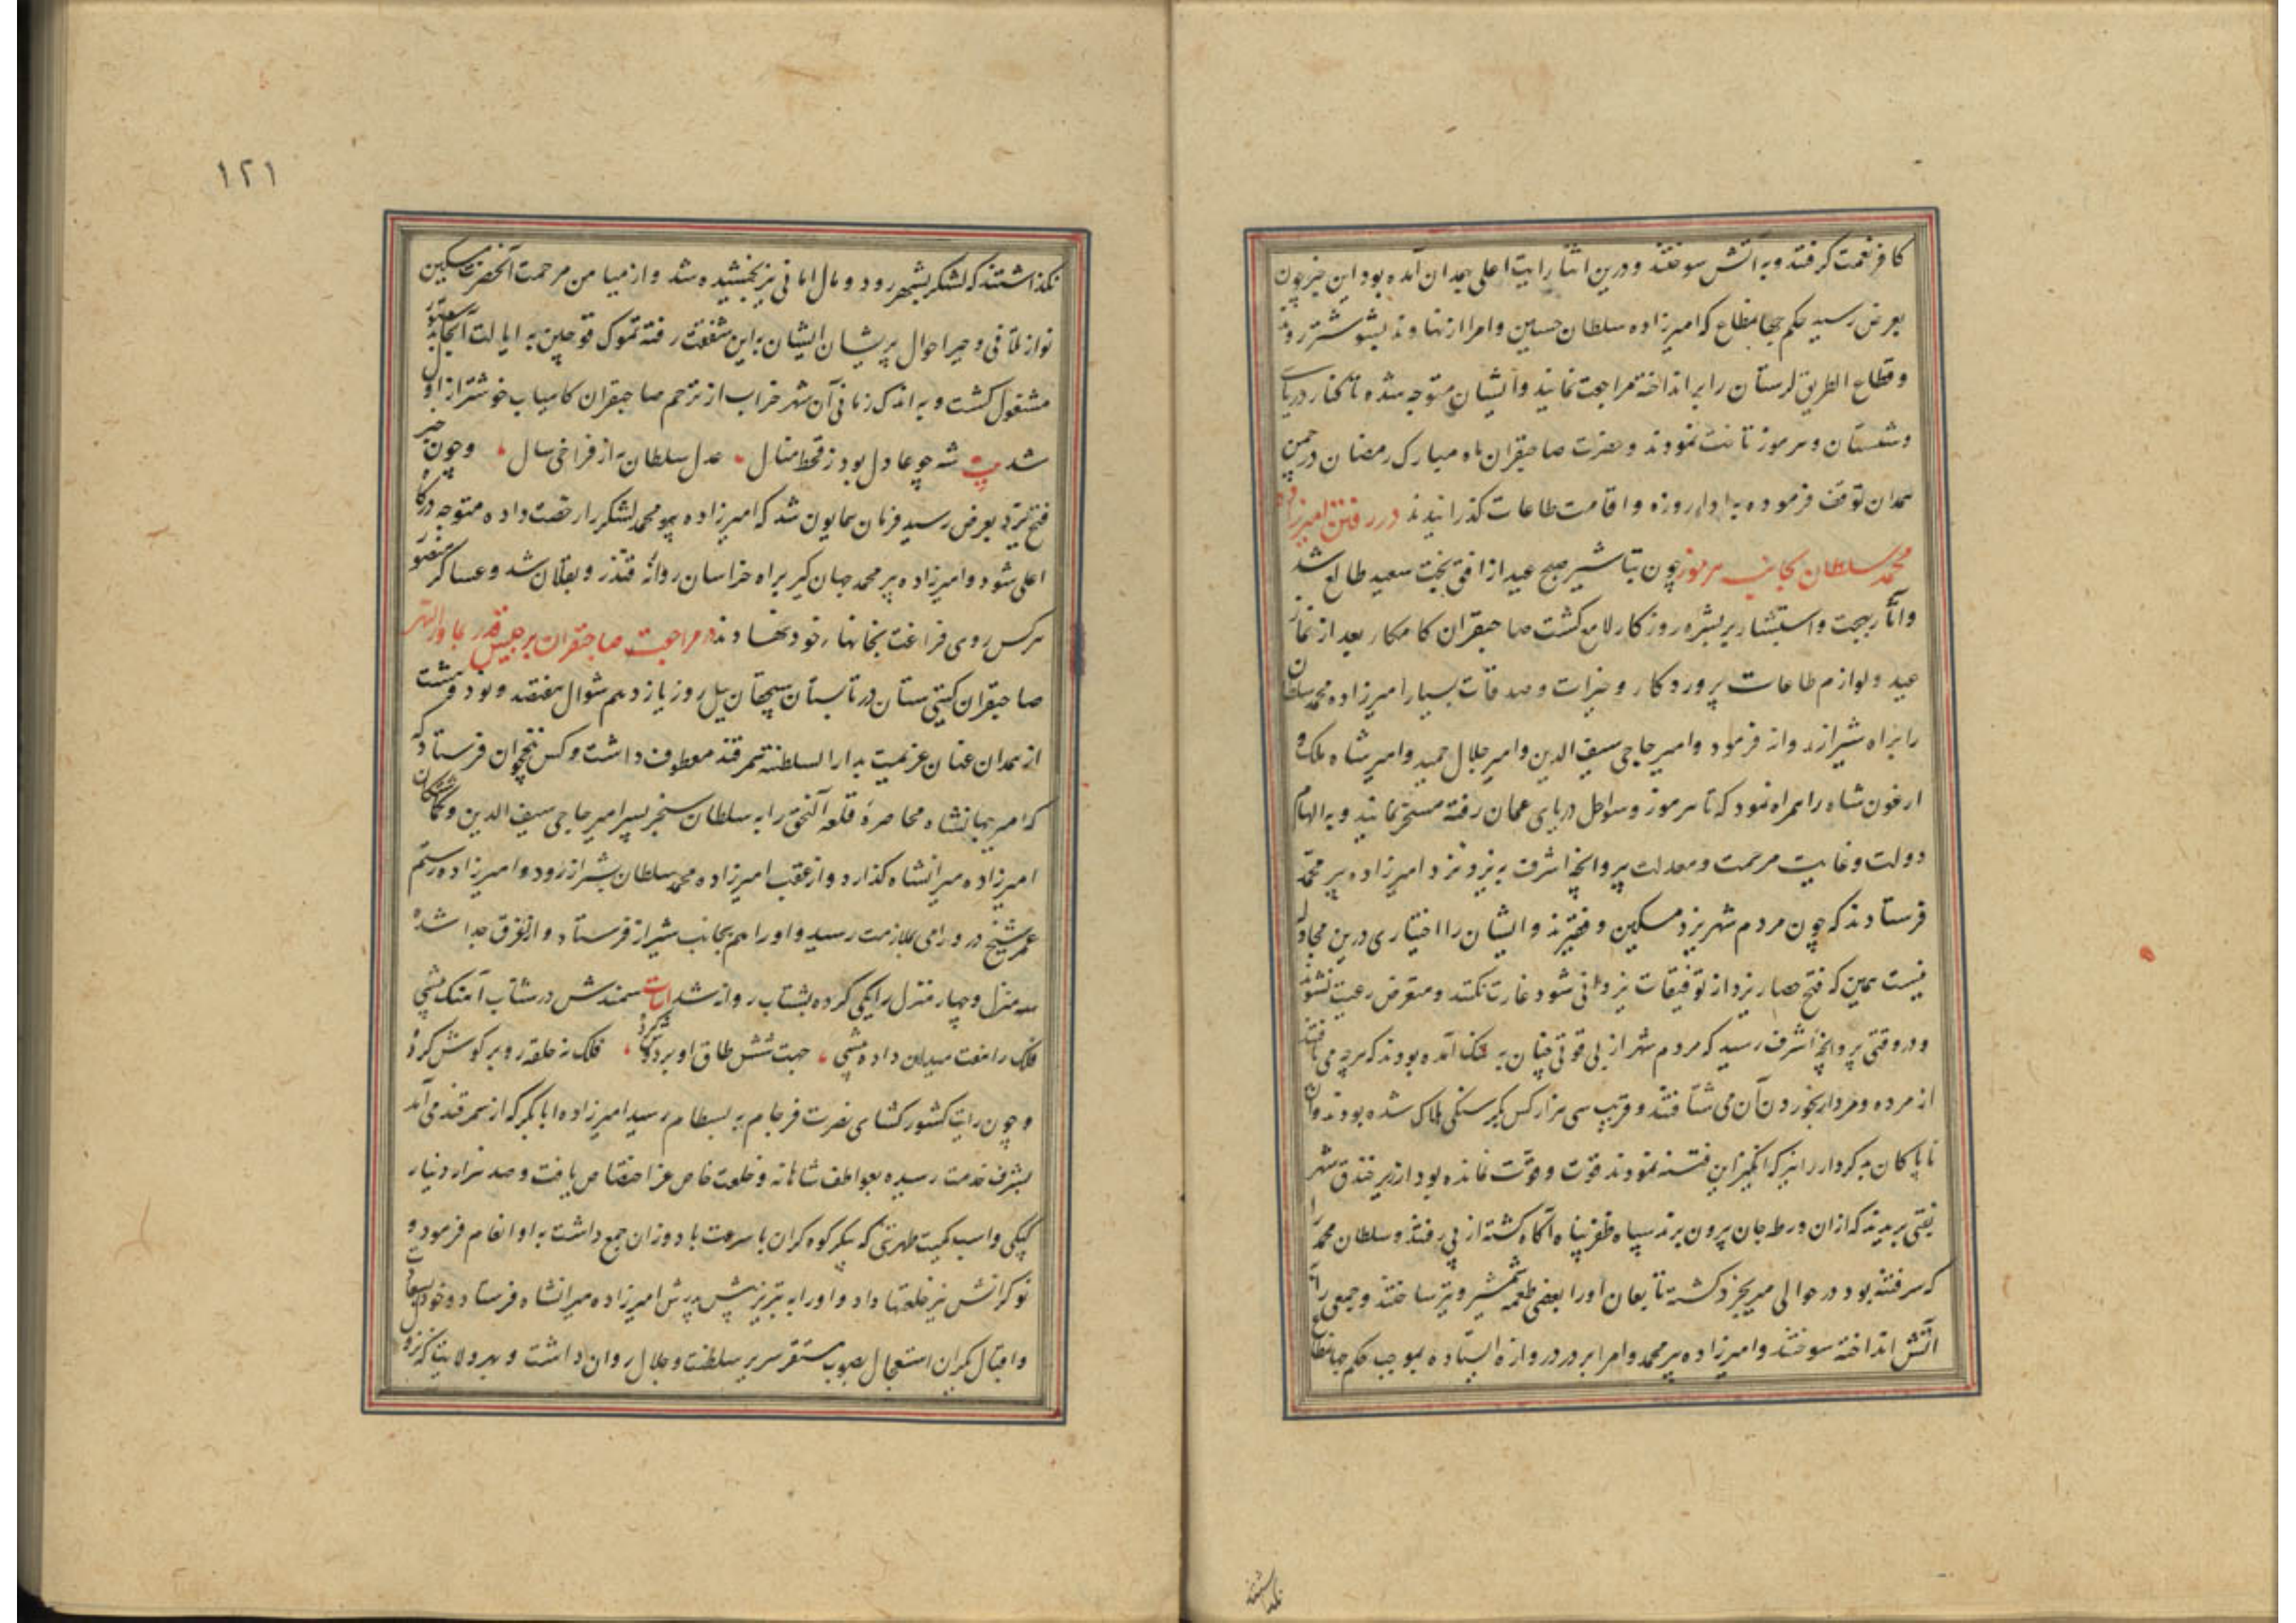 کافر نعمت گرفتند و به آتش سوختند و درین اثنا رایت اعلی بهمدان آمده بود این خبر چون
بعرض رسید حکم جهانمطاع که امیرزاده سلطان حسین و امرا از نهاوند بشوشتر روند
و قطاع الطریق لرستان را برانداخته مراجعت نمایند و ایشان متوجه شده تا کنار دریای
و شستان و هرموز تاخت نمودند و حضرت صاحبقران ماه مبارک رمضان در چمن
همدان توقف فرموده به ادا روزه و اقامت طاعات گذرانیدند در رفتن امیرزاده
محمد سلطان بجانب هرموز چون تباشیر صبح عید از افق بخت سعید طالع شد
و آثار بهجت و استبشار بر بشره روزگار لامع گشت صاحبقران کامکار بعد از نماز
عید و لوازم طاعات پروردگار و خیرات و صدقات بسیار امیرزاده محمد سلطان
را براه شیراز روانه فرمود و امیر حاجی سیف الدین و امیر جلال حمید و امیر شاه ملک و
ارغون شاه را همراه نمود که تا هرموز و سواحل دریای عمان رفته مسخر نمایند و به الهام
دولت و غایت مرحمت و معدلت پروانچه اشرف به یزد نزد امیرزاده پیر محمد
فرستادند که چون مردم شهر یزد مسکین و فقیرند و ایشان را اختیاری درین مجادله
نیست همین که فتح حصار یزد از توفیقات یزدانی شود غارت نکنند و متعرض رعیت نشوند
و در وقتی پروانچه اشرف رسید که مردم شهر از بی قوتی چنان به تنک آمده بودند که هرچه می یافتند
از مرده و مردار بخوردن آن می شتافتند و قریب سی هزار کس بگرسنگی هلاک شده بودند و آن
ناپاکان بد کردار را نیز که انگیز این فتنه نمودند قوت و قوّت نمانده بود از زیر خندق شهر
نقبی بریدند که ازان ورطه جان بیرون برند سپاه ظفرپناه آگاه گشته از پی رفتند و سلطان محمد را
که سر فتنه بود در حوالی مهریجرد کشته تابعان او را بعضی طعمه شمشیر و تیر ساختند و جمعی را
آتش انداخته سوختند و امیرزاده پیر محمد و امرا بر در دروازه ایستاده بموجب حکم جهانمطاع
نگذاشتند
۱۲۱
نگذاشتند که لشکر بشهر رود و مال امانی نیز بخشیده شد و از میامن مرحمت آنحضرت مسکین
نواز تلافی و جبر احوال پریشان ایشان به این شفقت رفته تموک قوچین به ایالت آنجا بدستور
مشغول گشت و به اندک زمانی آن شهر خراب از ترحم صاحبقران کامیاب خوشتر از اول
شد بیت شه چو عادل بود ز قحط منال عدل سلطان به از فراخی سال و چون خبر
فتح یزد بعرض رسید فرمان همایون شد که امیرزاده پیر محمد لشکر را رخصت داده متوجه درگاه
اعلی شود و امیرزاده پیر محمد جهانگیر براه خراسان روانه قندز و بقلان شد و عساکر منصور
هرکس روی فراغت بخانها خود نهادند در مراجعت صاحبقران برجیس قدر بماورالنهر
صاحبقران گیتی ستان در تابستان سیچقان ییل روز یازدهم شوال هفتصد و نود و هشت
از همدان عنان عزیمت بدار السلطنه سمرقند معطوف داشت و کس بنخچوان فرستاد که
که امیر جهانشاه محاصرهٔ قلعه النجق را به سلطان سنجر پسر امیر حاجی سیف الدین و گماشتگان
امیرزاده میرانشاه گذارد و از عقب امیرزاده محمد سلطان بشیراز رود و امیرزاده رستم
عمر شیخ در ورامی بملازمت رسید و او را هم بجانب شیراز فرستاد و از اغرق جدا شده
سه منزل و چهار منزل را یکی کرده بشتاب روانه شد ابیات سمندش در شتاب آهنگ بیشی
فلک را هفت میدان داده پیشی جهت شش طاق او بر دوش کرد فلک نه حلقه رو بر گوش کرد
و چون رایت کشورگشای نصرت فرجام به بسطام رسید امیرزاده ابابکر که از سمرقند می آمد
بشرف خدمت رسیده بعواطف شاهانه و خلعت خاص عز اختصاص یافت و صد هزار دینار
کپکی و اسب کمیت طهرتنی که پیکر کوه گران با سرعت باد وزان جمع داشت به او انعام فرمود و
نوکرانش نیز خلعتها داد و او را به تبریز پیش پدرش امیرزاده میرانشاه فرستاد و خود بسعادت
و اقبال یکران استعجال بصوب مستقر سریر سلطنت و جلال روان داشت و بهر ولایتی که نزول